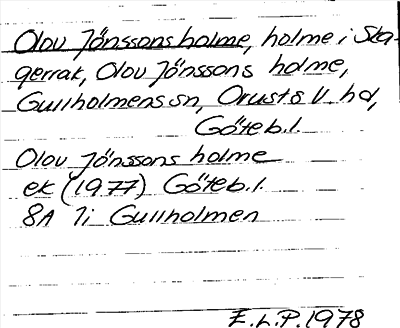 Olov Jönssons holme, holme i Ska-
gerrak, Olov Jönssons holme,
Gullholmens sn, Orusts V. hd,
Göteb.l.
Olov Jönssons holme
ek (1977) Göteb.l.
8A 7i Gullholmen
E.L.P. 1978